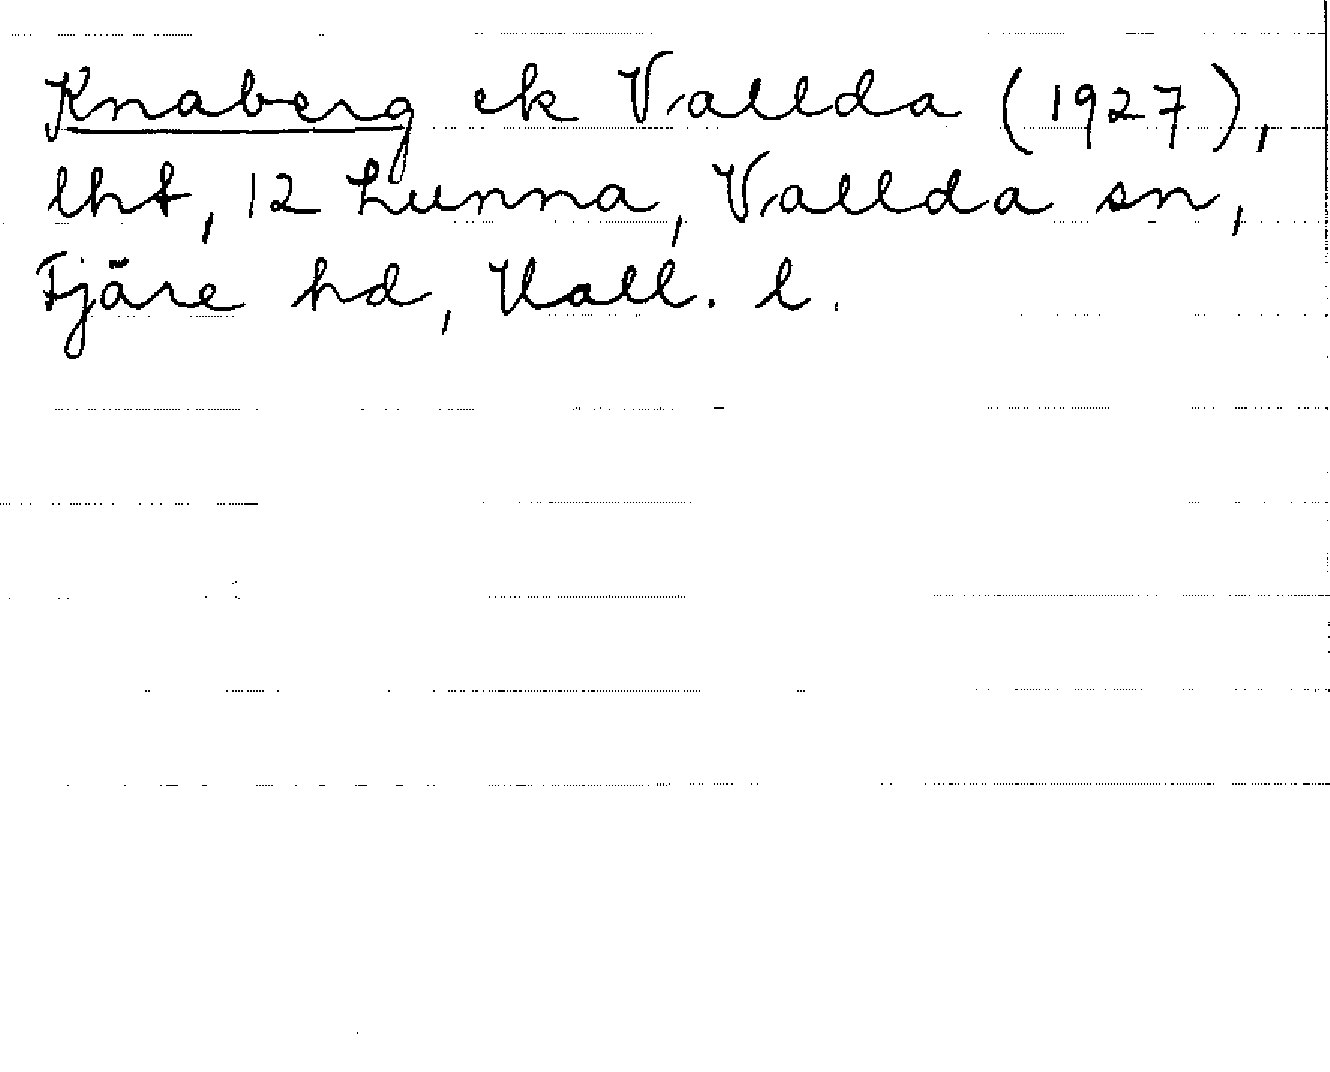 Knaberg ek Vallda (1927),
lht, 12 Lunna, Vallda sn,
Fjäre hd, Hall. l.